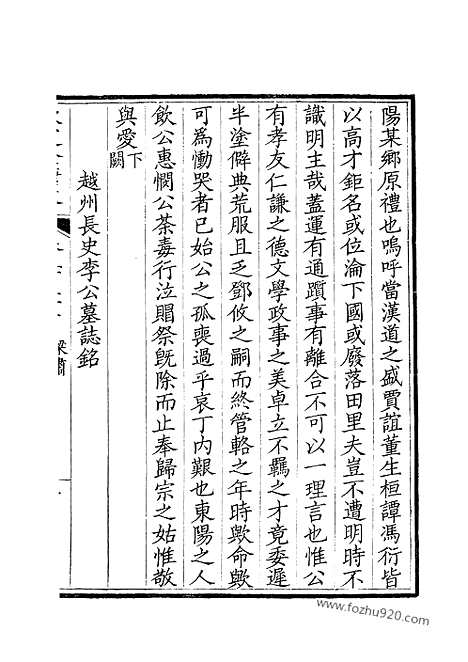 陽某鄉原禮也嗚呼當漢道之盛賈誼董生桓譚馮衍皆
以高才鉅名或位淪下國或廢落田里夫豈不遭明時不
識明主哉蓋運有通躓事有離合不可以一理言也惟公
有孝友仁謙之德文學政事之美卓立不羈之才竟委遲
半塗僻典荒服且乏鄧攸之嗣而終管輅之年時歟命歟
可為慟哭者已始公之孤喪過乎哀丁内艱也東陽之人
飲公惠憫公荼毒行泣賵祭旣除而止奉歸宗之姑惟敬
與愛下闕
越州長史李公墓誌銘
梁肅
www.fozhu920.com